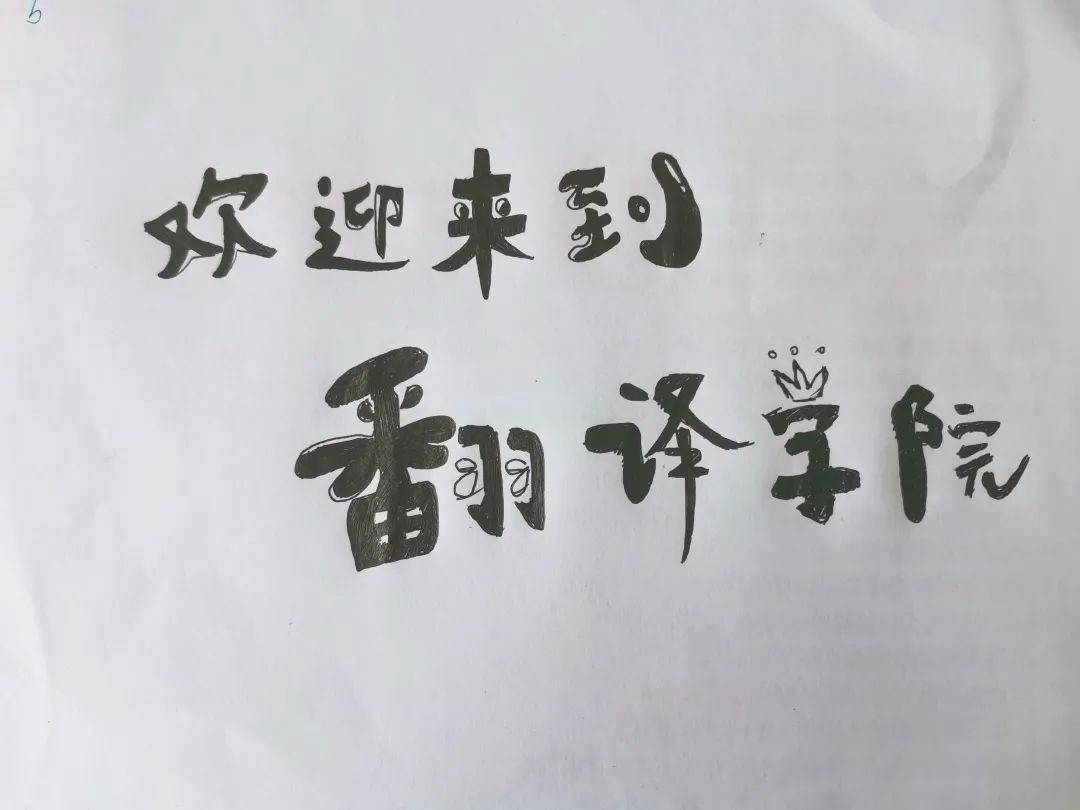 欢迎来到
翻译学院